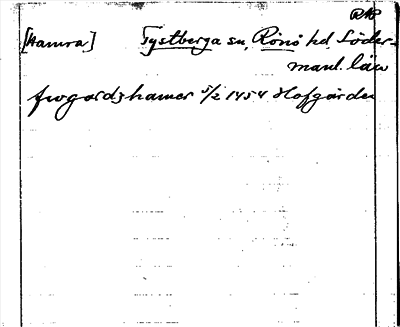 RAP
[Hamra] Tystberga sn, Rönö hd, Söder-
manl. län
frogardzhamer 5/2 1454 Hofgården